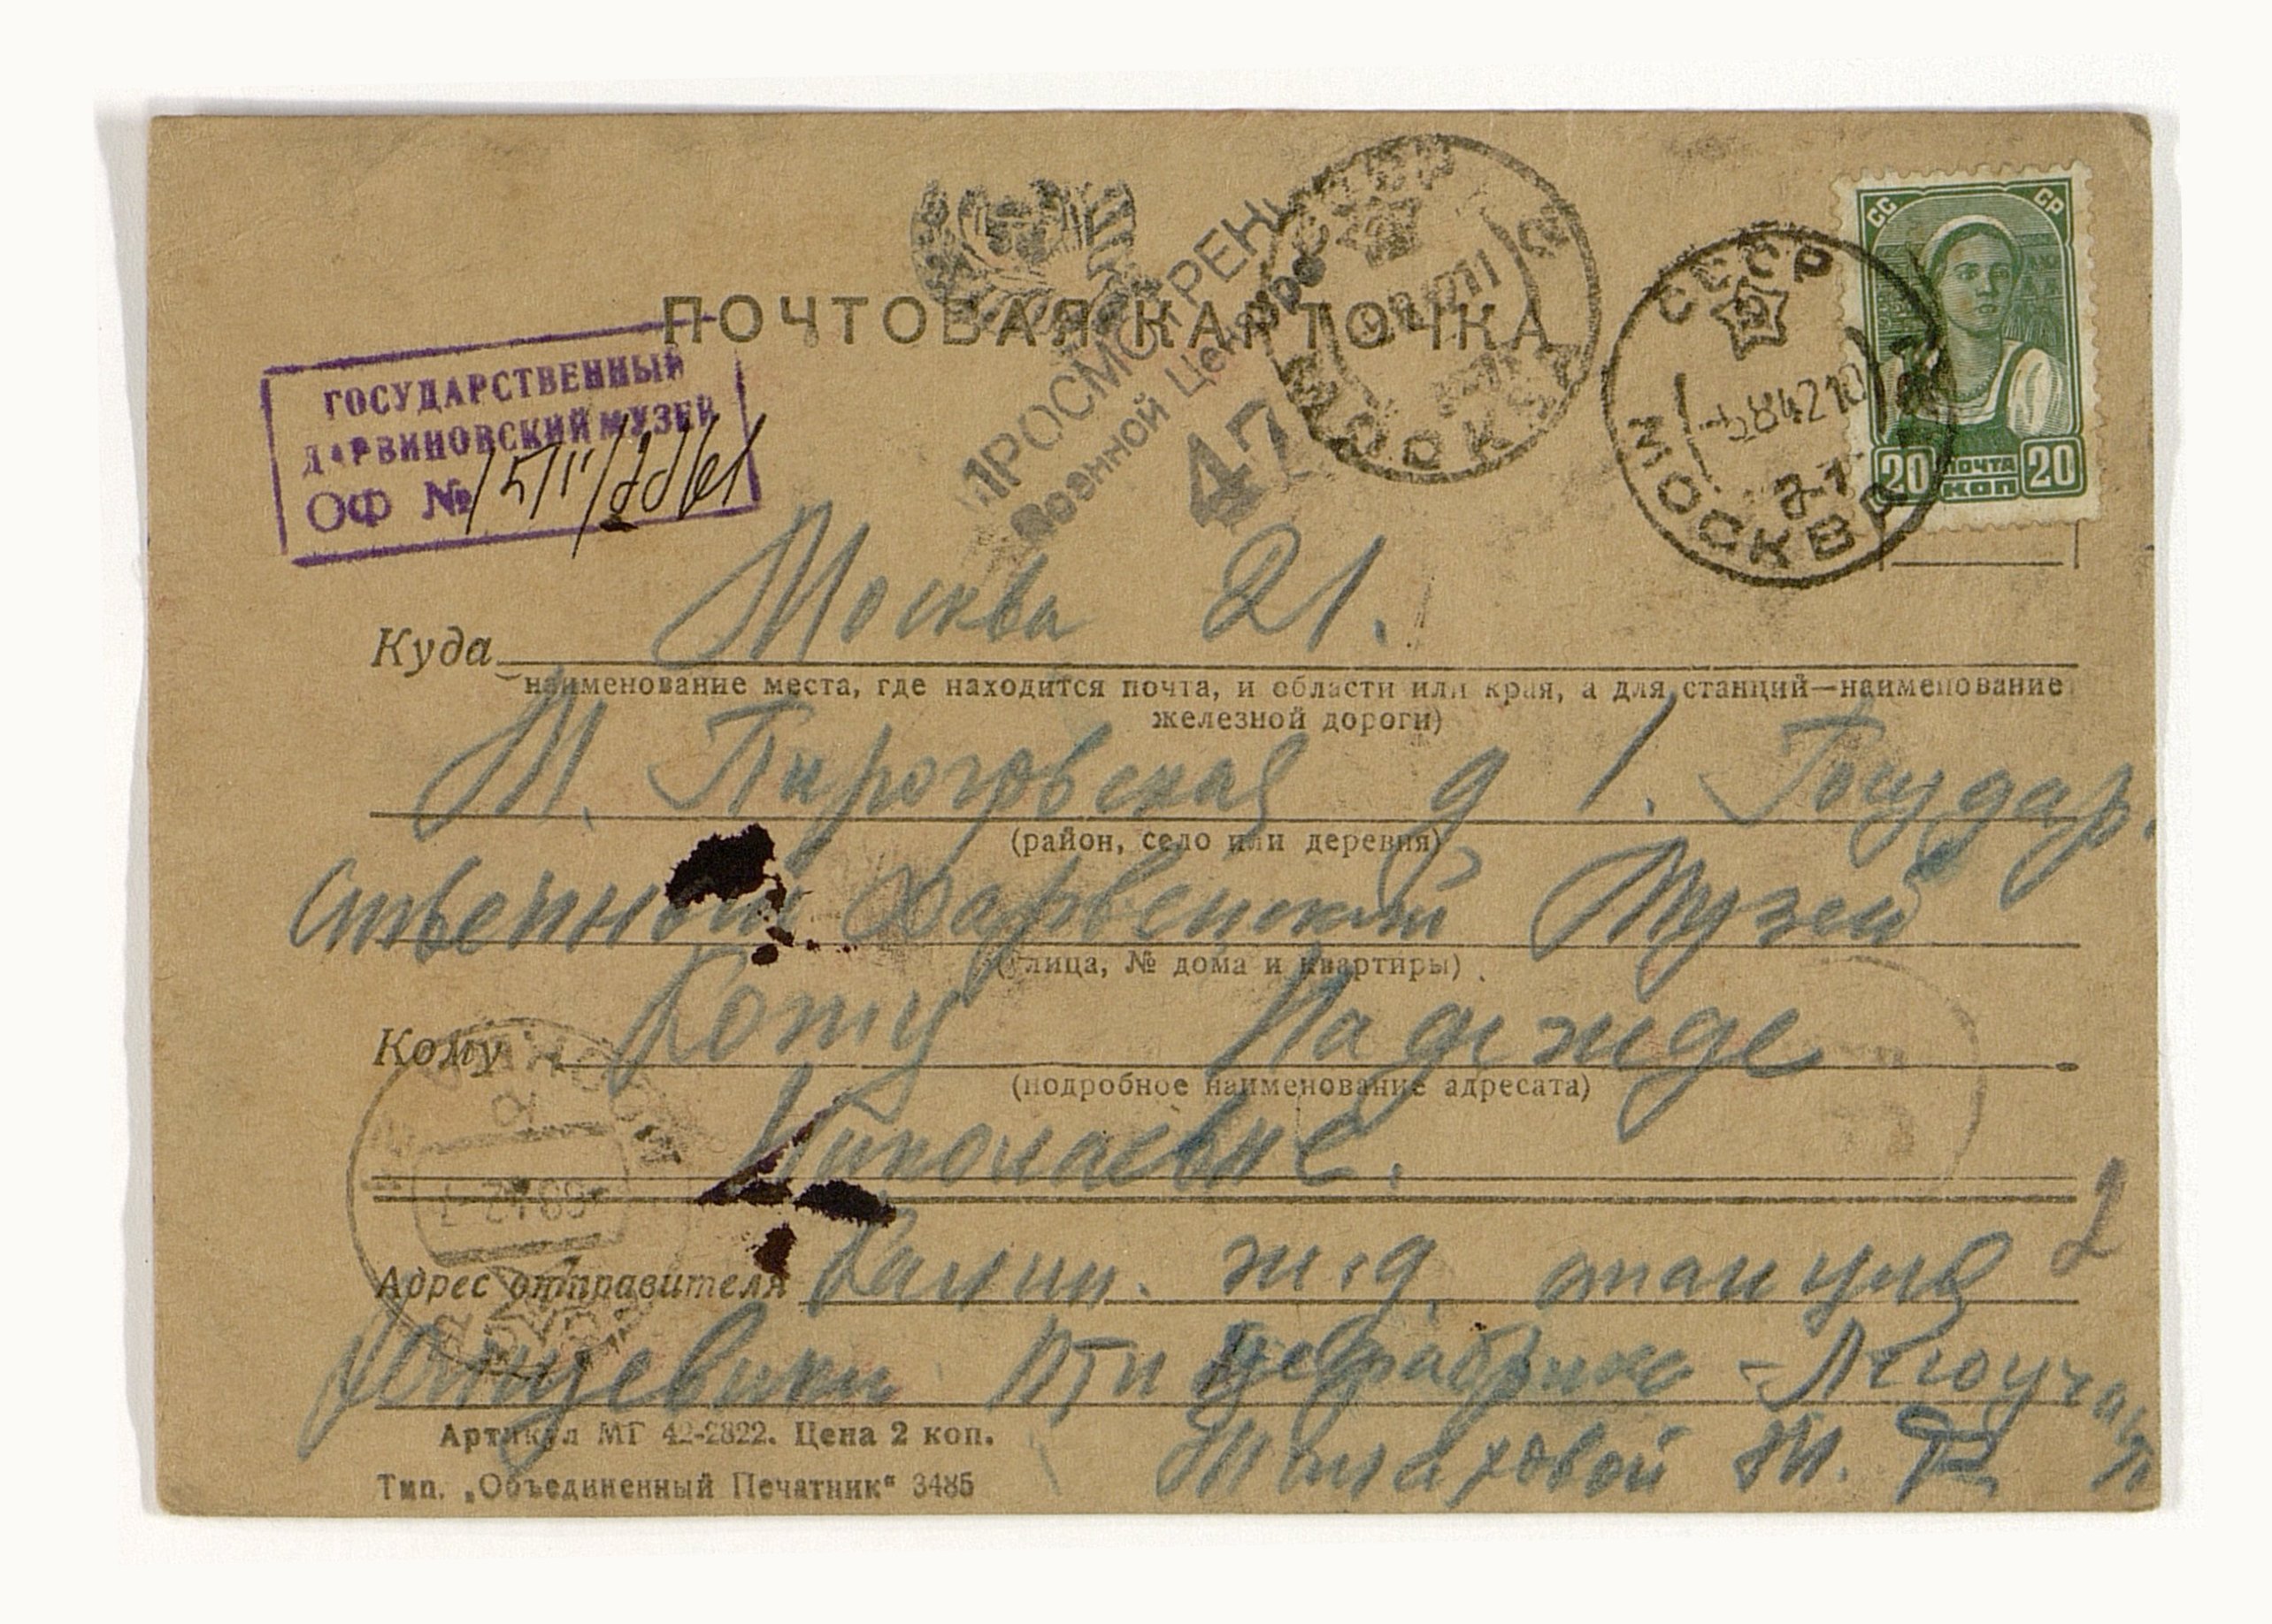 ПОЧТОВАЯ КАРТОЧКА
ПРОСМОТРЕНО
Военной Цензурой
47
СССР
МОСКВА
СССР
МОСКВА
5 8 42 10
СС СР
20 ПОЧТА 20
КОП
ГОСУДАРСТВЕННЫЙ
ДАРВИНОВСКИЙ МУЗЕЙ
ОФ №
Куда Москва 21.
наименование места, где находится почта, и области или края, а для станций—наименование
железной дороги)
М. Пироговская д 1. Государ.
(район, село или деревня)
ственный Дарвенский Музей
(улица, № дома и квартиры)
Кому Котц Надежде
(подробное наименование адресата)
Николаевне.
2
Адрес отправителя Калин. ж.д. станция
Птицефабрика
Артикул МГ 42-2822. Цена 2 коп.
Малаховой М.
Тип. „Объединенный Печатник“ 3485